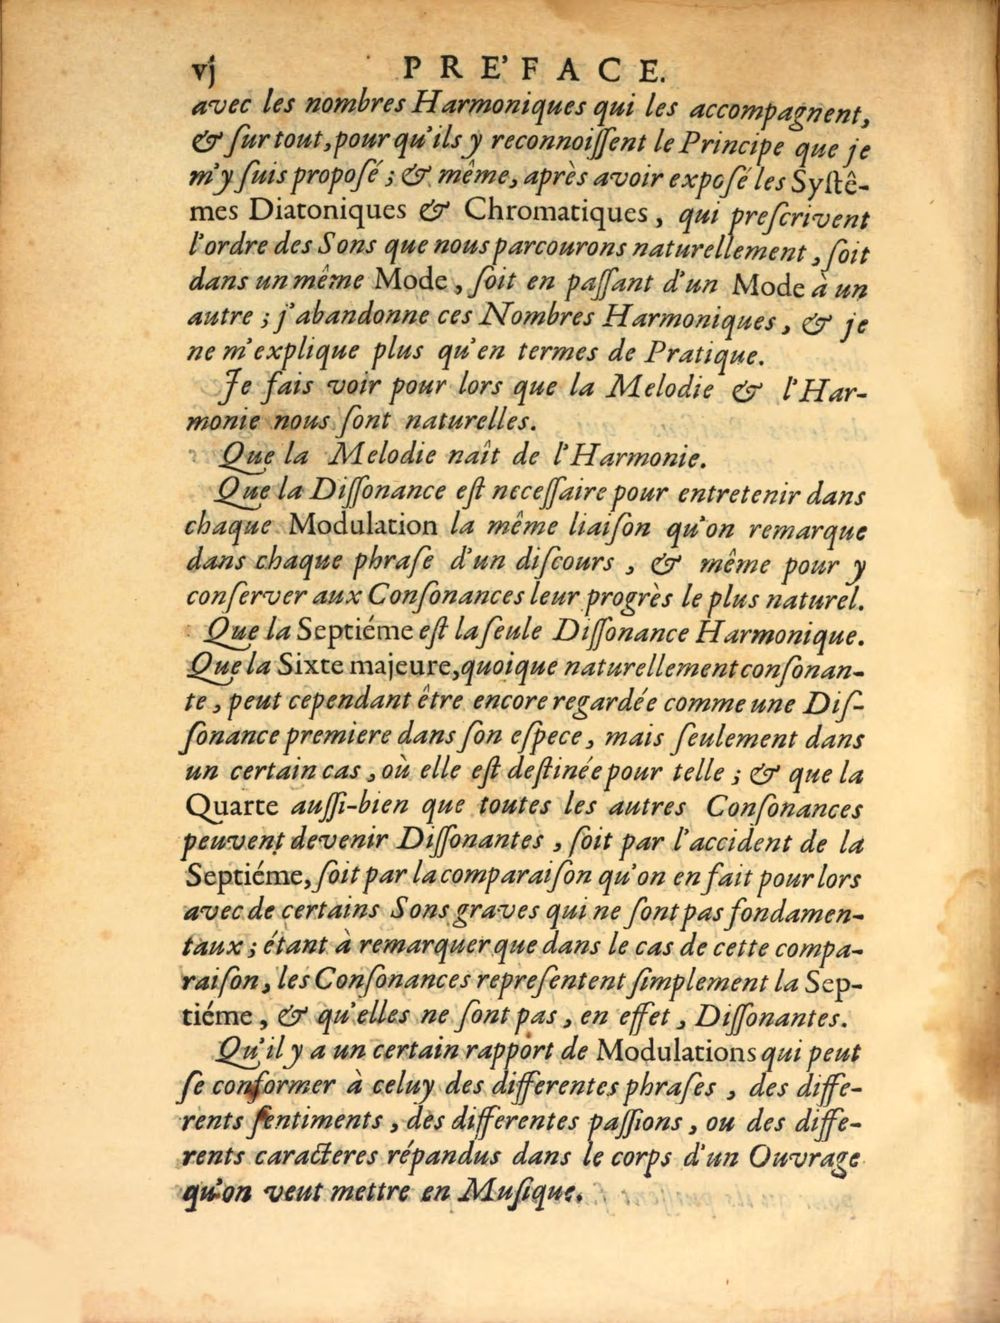 vj PRE'FACE.
avec les nombres Harmoniques qui les accompagnent,
& ſur tout, pour qu'ils y reconnoiſſent le Principe que je
m'y ſuis propoſé ; & même, après avoir expoſé les Syſtê-
mes Diatoniques & Chromatiques, qui preſcrivent
l'ordre des Sons que nous parcourons naturellement, ſoit
dans un même Mode, ſoit en paſſant d'un Mode à un
autre ; j'abandonne ces Nombres Harmoniques, & je
ne m'explique plus qu'en termes de Pratique.
Je fais voir pour lors que la Melodie & l'Har-
monie nous ſont naturelles.
Que la Melodie naît de l'Harmonie.
Que la Diſſonance eſt neceſſaire pour entretenir dans
chaque Modulation la même liaiſon qu'on remarque
dans chaque phraſe d'un diſcours, & même pour y
conſerver aux Conſonances leur progrès le plus naturel.
Que la Septiéme eſt la ſeule Diſſonance Harmonique.
Que la Sixte majeure, quoique naturellement conſonan-
te, peut cependant être encore regardée comme une Diſ-
ſonance premiere dans ſon eſpece, mais ſeulement dans
un certain cas, où elle eſt deſtinée pour telle ; & que la
Quarte auſſi-bien que toutes les autres Conſonances
peuvent devenir Diſſonantes, ſoit par l'accident de la
Septiéme, ſoit par la comparaiſon qu'on en fait pour lors
avec de certains Sons graves qui ne ſont pas fondamen-
taux ; étant à remarquer que dans le cas de cette compa-
raiſon, les Conſonances repreſentent ſimplement la Sep-
tiéme, & qu'elles ne ſont pas, en effet, Diſſonantes.
Qu'il y a un certain rapport de Modulations qui peut
ſe conformer à celuy des differentes phraſes, des diffe-
rents ſentiments, des differentes paſſions, ou des diffe-
rents caracteres répandus dans le corps d'un Ouvrage
qu'on veut mettre en Muſique.